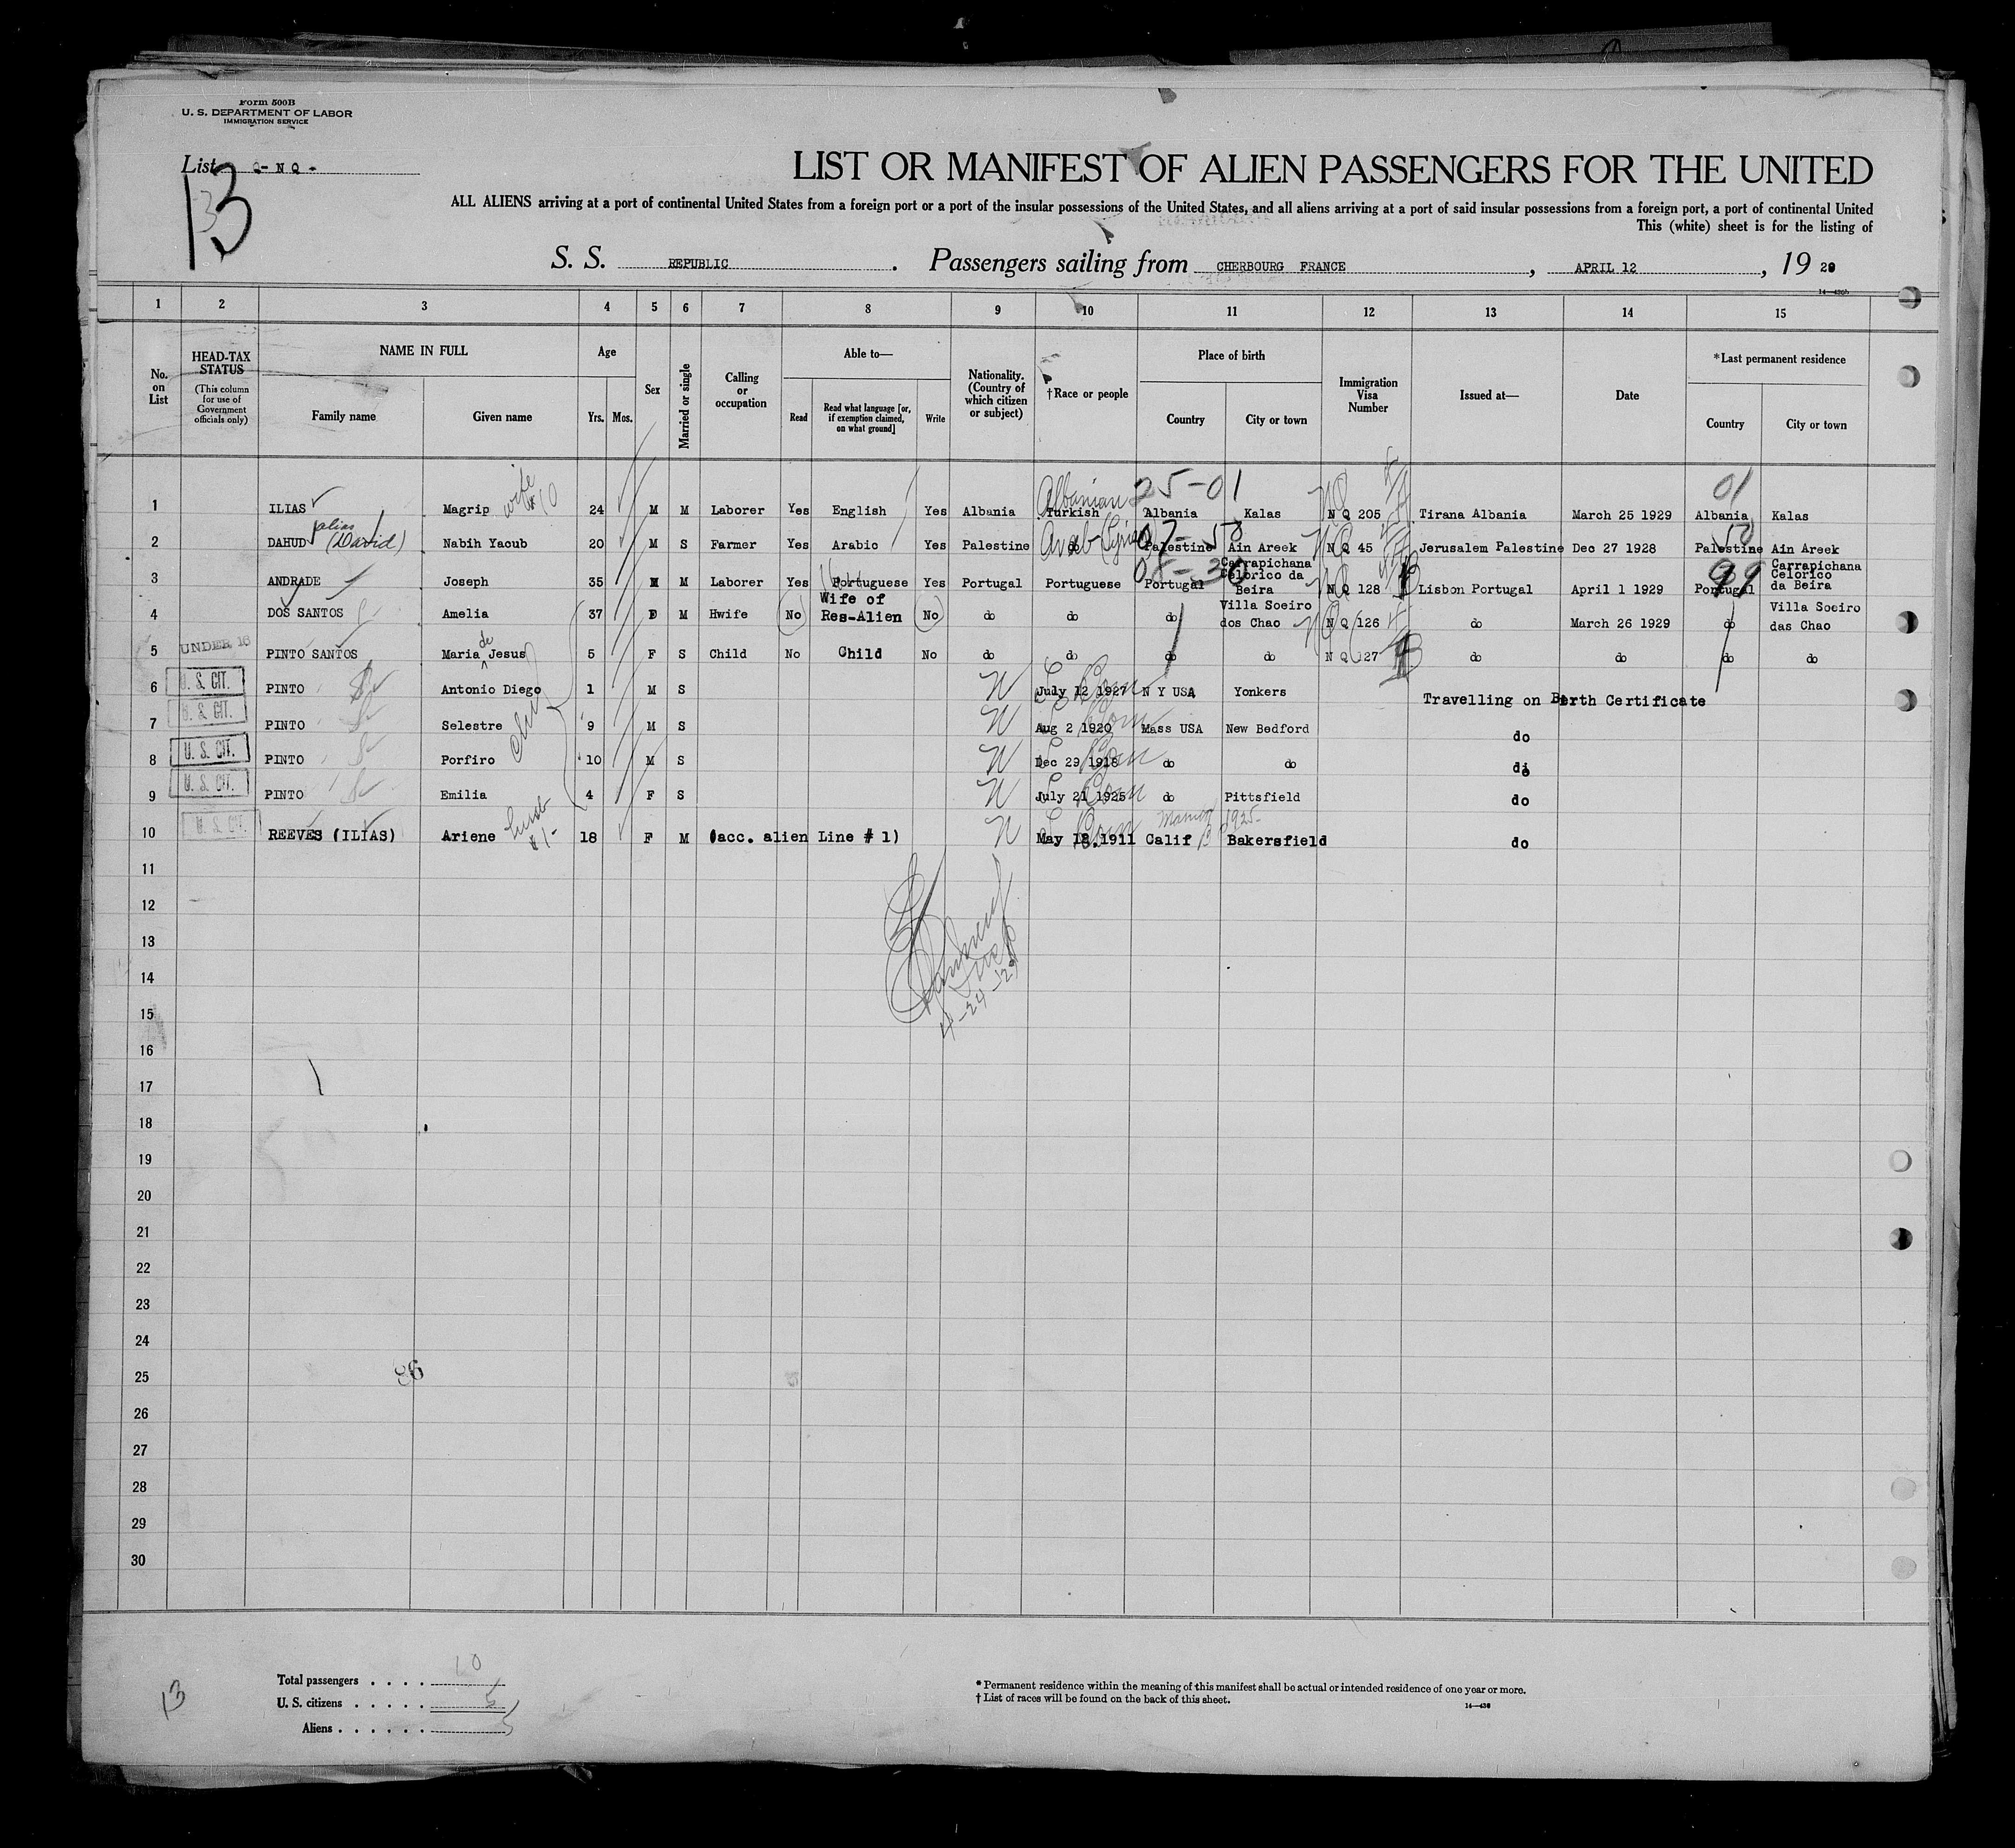 Form 500B
U. S. DEPARTMENT OF LABOR
IMMIGRATION SERVICE
List Q- N Q -
13
LIST OR MANIFEST OF ALIEN PASSENGERS FOR THE UNITED
ALL ALIENS arriving at a port of continental United States from a foreign port or a port of the insular possessions of the United States, and all aliens arriving at a port of said insular possessions from a foreign port, a port of continental United
This (white) sheet is for the listing of
S. S. REPUBLIC . Passengers sailing from CHERBOURG FRANCE , APRIL 12 , 19 29
1 2 3 4 5 6 7 8 9 10 11 12 13 14 15
No. on List
HEAD-TAX STATUS (This column for use of Government officials only)
NAME IN FULL
Family name Given name
Age
Yrs. Mos.
Sex
Married or single
Calling or occupation
Able to—
Read
Read what language [or, if exemption claimed, on what ground]
Write
Nationality. (Country of which citizen or subject)
†Race or people
Place of birth
Country City or town
Immigration Visa Number
Issued at—
Date
*Last permanent residence
Country City or town
1 ILIAS Magrip wife # 10 24 M M Laborer Yes English Yes Albania Albanian Turkish 25-01 Albania Kalas N Q 205 Tirana Albania March 25 1929 01 Albania Kalas
2 DAHUD alias (David) Nabih Yaoub 20 M S Farmer Yes Arabic Yes Palestine Arab (Syrian) do Palestine Ain Areek N Q 45 Jerusalem Palestine Dec 27 1928 Palestine Ain Areek
3 ANDRADE Joseph 35 M M Laborer Yes Portuguese Yes Portugal Portuguese Portugal Carrapichana Celorico da Beira N Q 128 Lisbon Portugal April 1 1929 99 Portugal Carrapichana Celorico da Beira
4 DOS SANTOS Amelia 37 F M Hwife No Wife of Res-Alien No do do do Villa Soeiro dos Chao N Q 126 do March 26 1929 do Villa Soeiro das Chao
5 UNDER 16 PINTO SANTOS Maria de Jesus 5 F S Child No Child No do do do do N Q 127 do do do do
6 U. S. CIT. PINTO Antonio Diego 1 M S N July 12 1927 N Y USA Yonkers Travelling on Birth Certificate
7 U. S. CIT. PINTO Selestre 9 M S N Aug 2 1920 Mass USA New Bedford do
8 U. S. CIT. PINTO Porfiro 10 M S N Dec 29 1918 do do do
9 U. S. CIT. PINTO Emilia 4 F S N July 21 1925 do Pittsfield do
10 U. S. CIT. REEVES (ILIAS) Ariene husb #1- 18 F M (acc. alien Line # 1) N May 18.1911 Calif Bakersfield do
11
12
13
14
15
4-24-29
16
17
18
19
20
21
22
23
24
25
86
26
27
28
29
30
13
Total passengers . . . . 10
U. S. citizens . . . . . 5
Aliens . . . . . . 5
* Permanent residence within the meaning of this manifest shall be actual or intended residence of one year or more.
† List of races will be found on the back of this sheet.
14—436